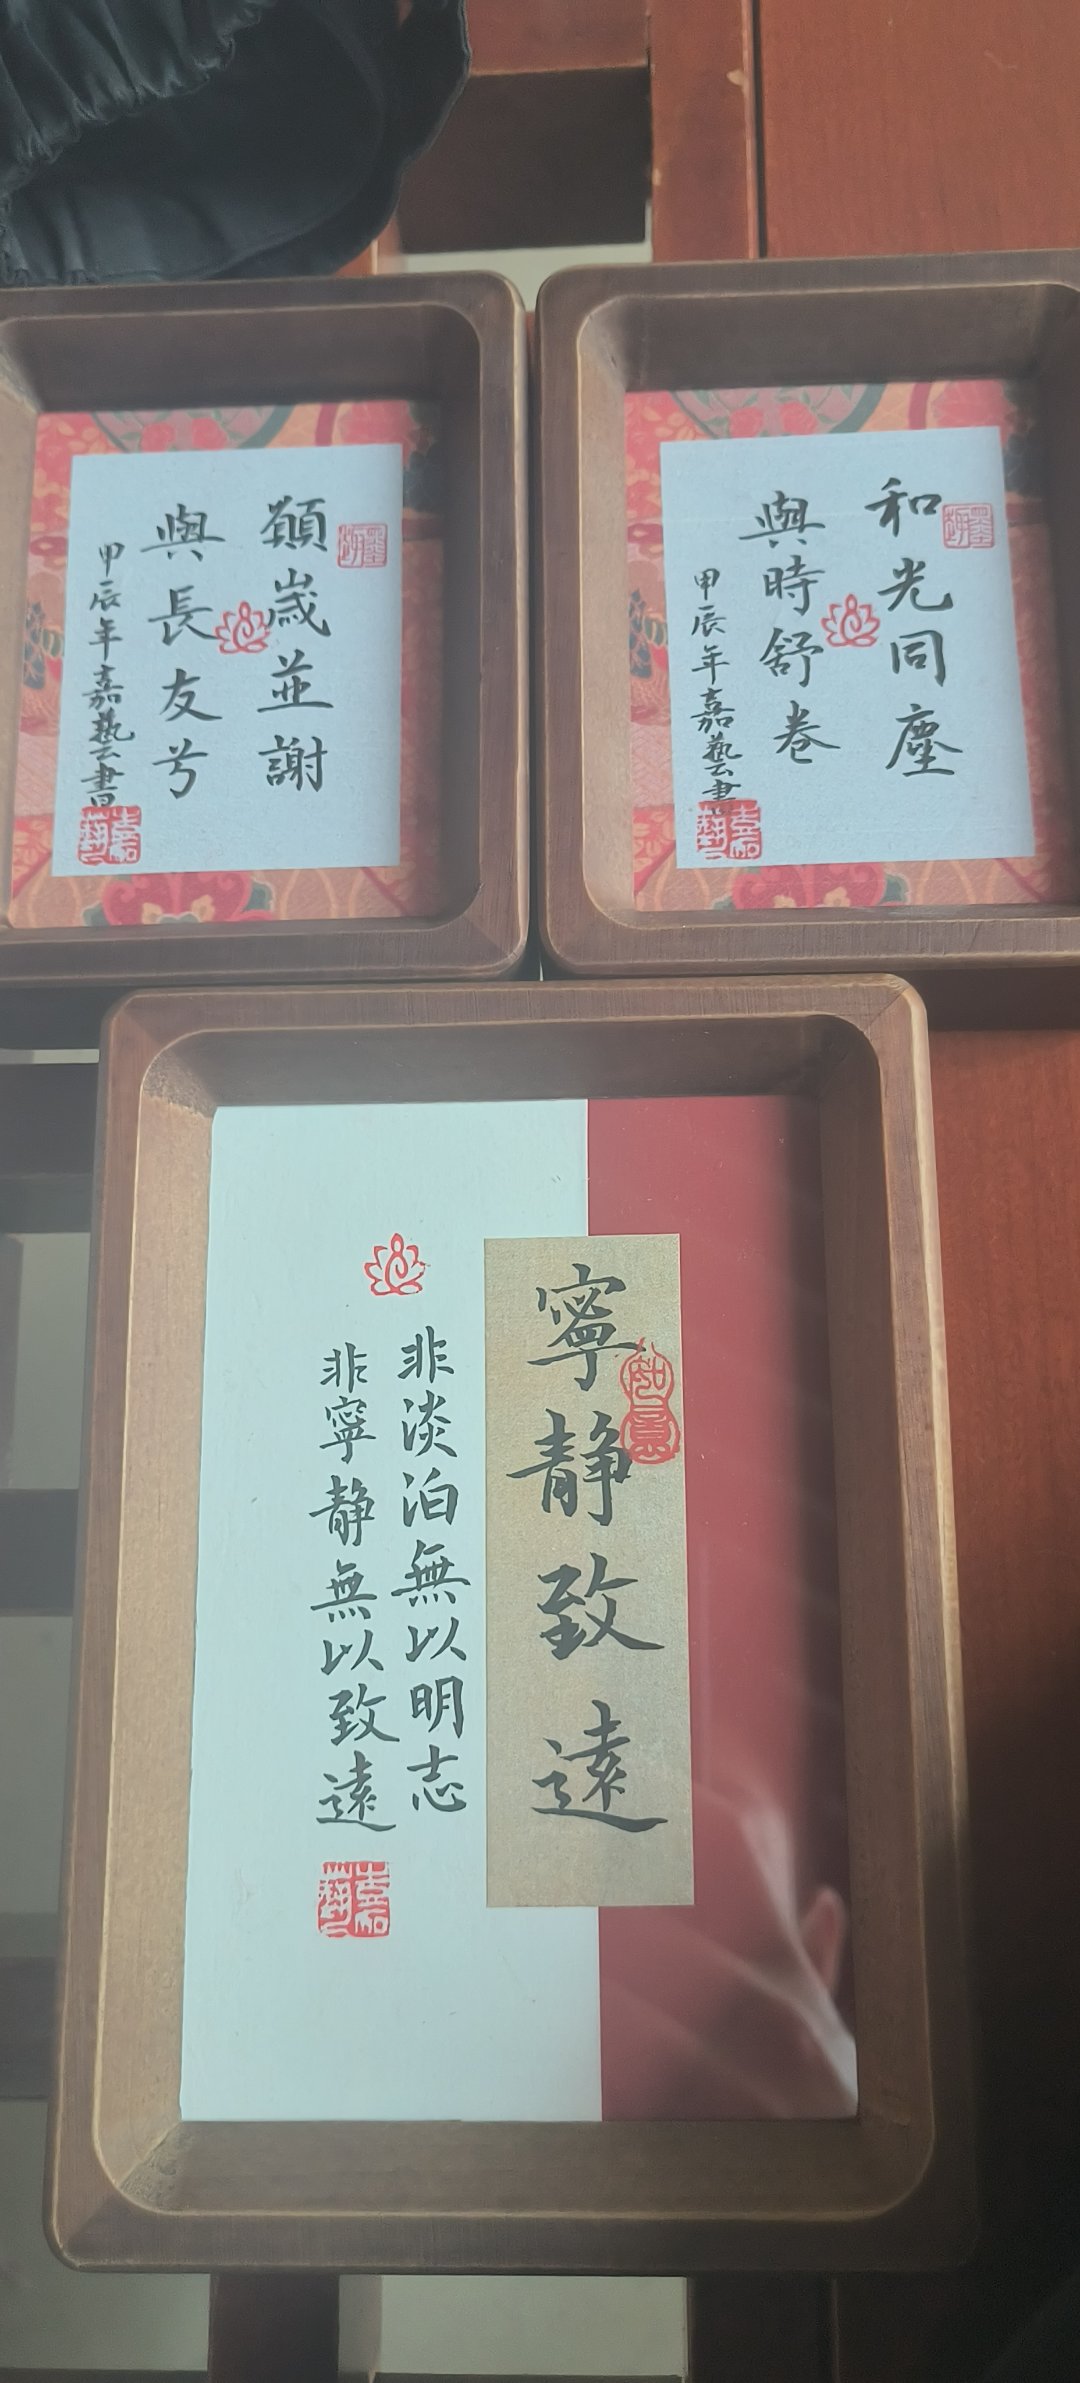 願歲並謝
與長友兮
甲辰年嘉藝書
嘉藝
和光同塵
與時舒卷
甲辰年嘉藝書
嘉藝
寧靜致遠
如意
非淡泊無以明志
非寧靜無以致遠
嘉藝